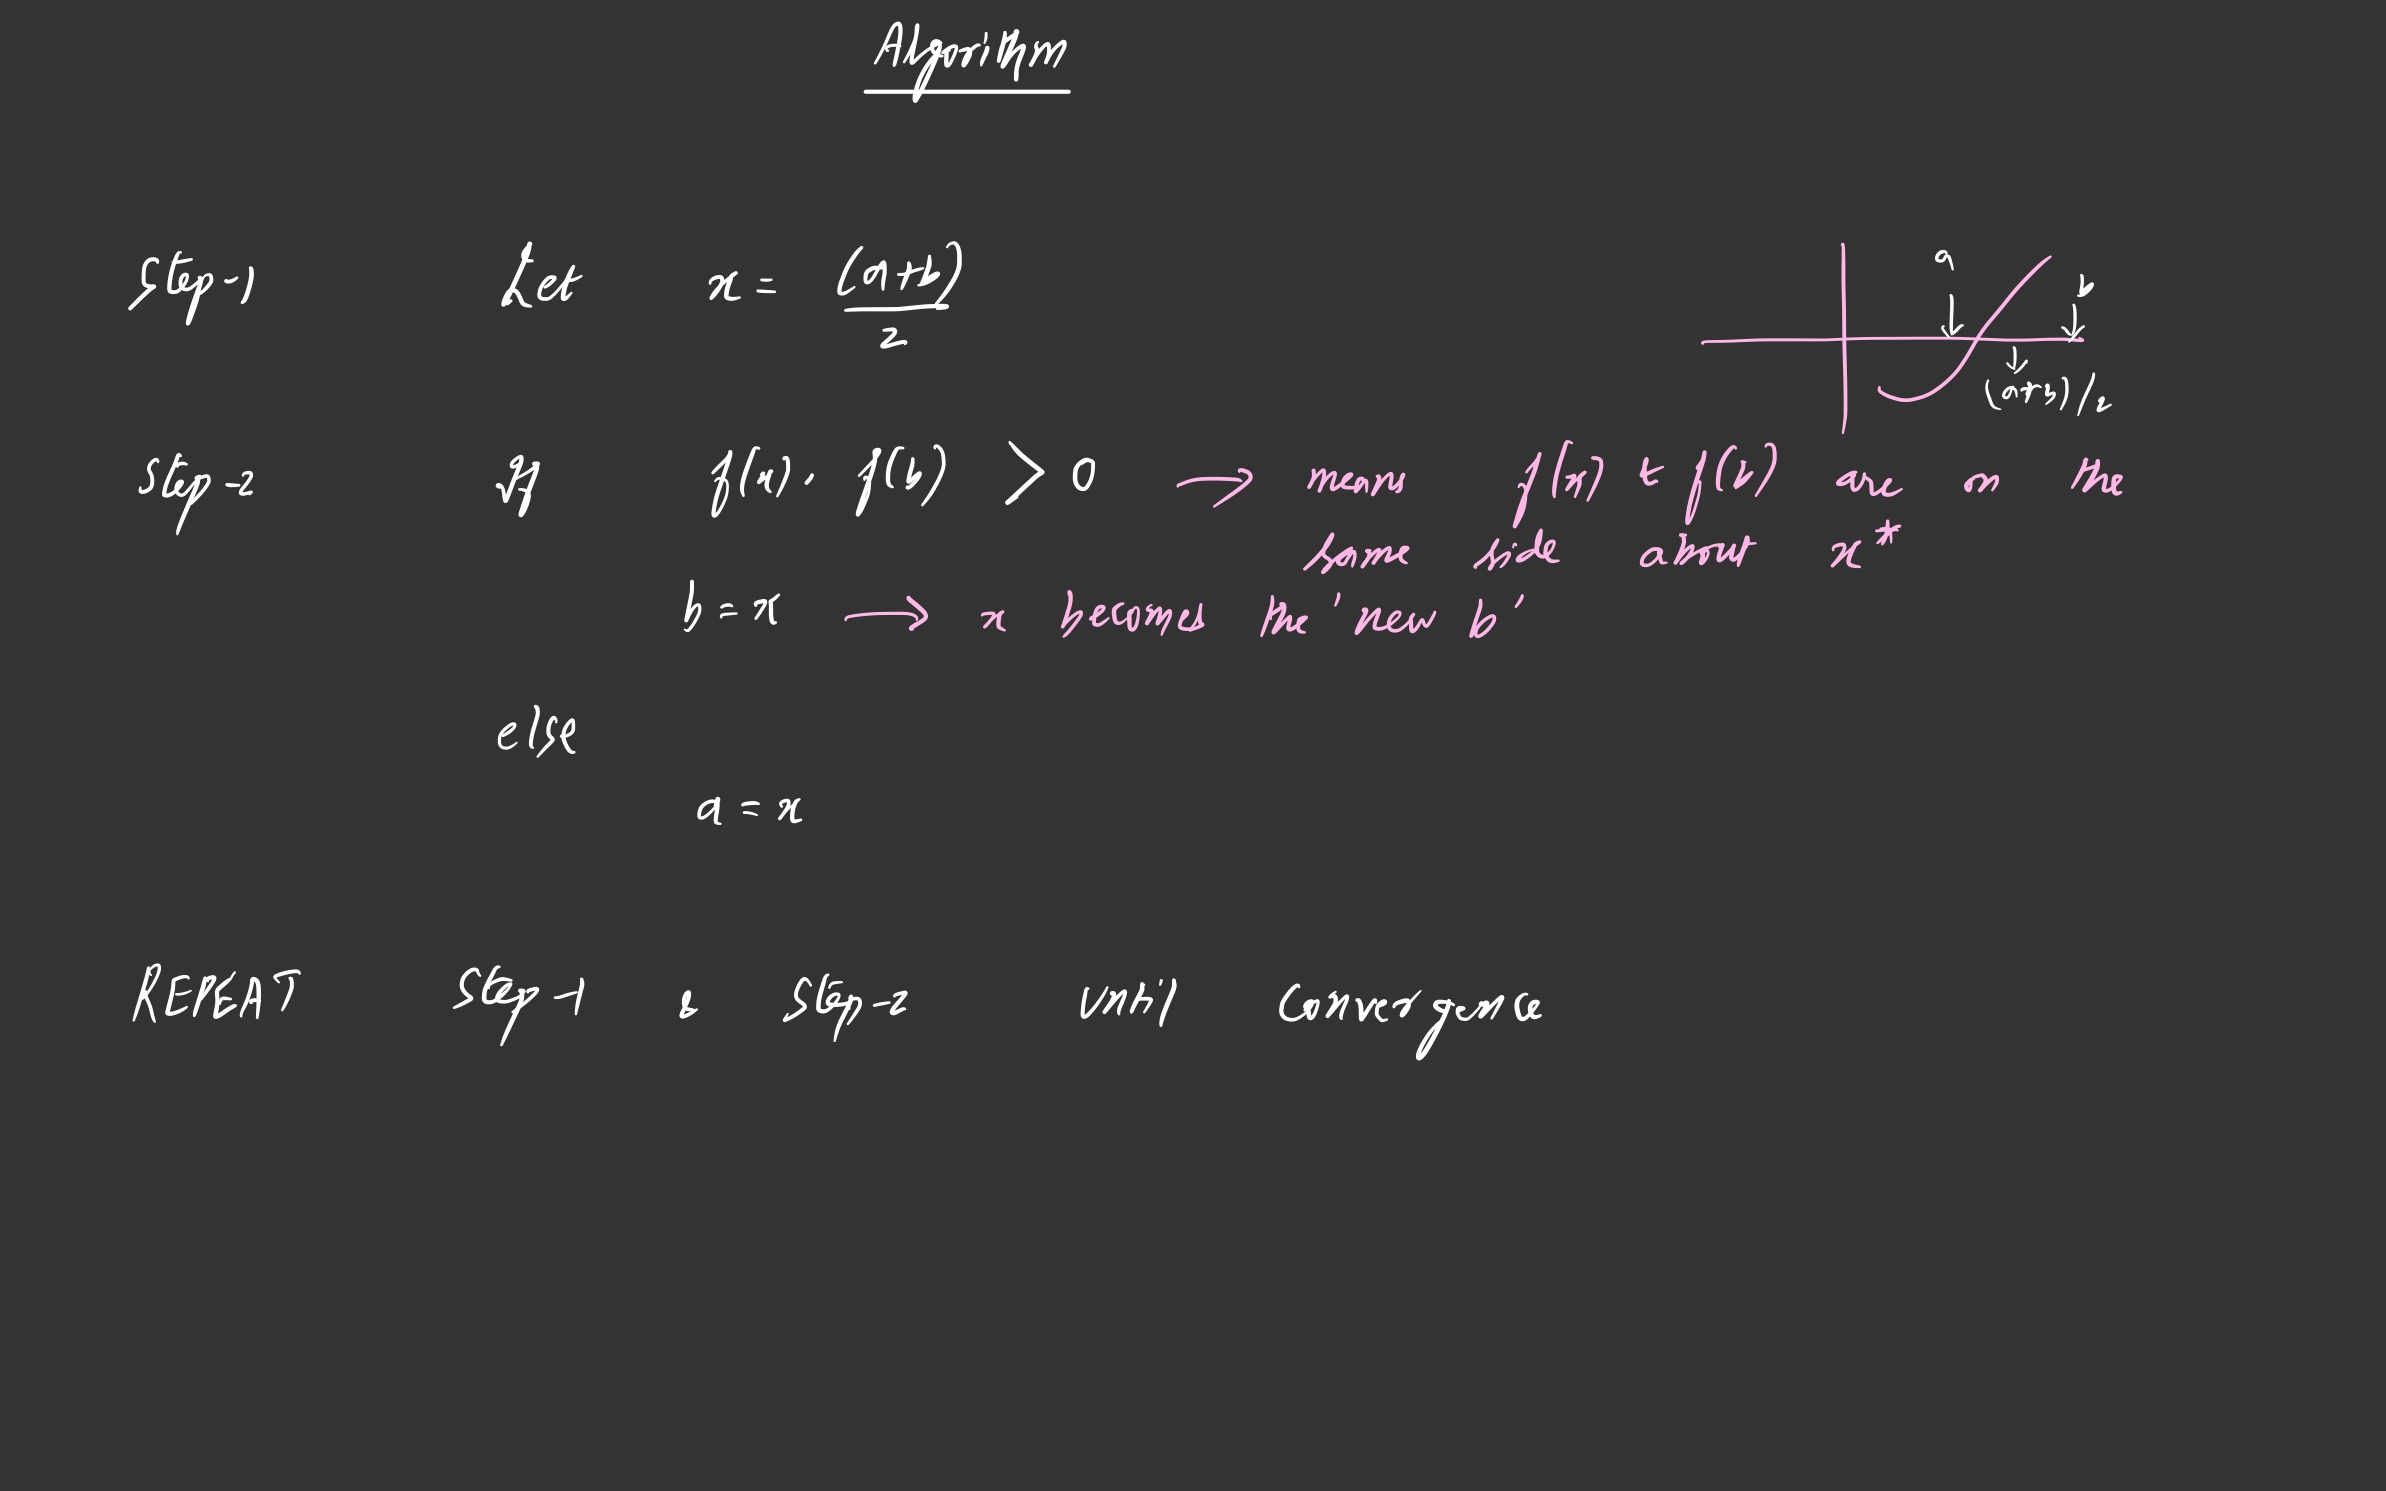 Algorithm
Step-1 Let x = (a+b)/2
a
b
(a+b)/2
Step-2 If f(x). f(b) > 0 → means f(x) & f(b) are on the
same side about x*
b = x → x becomes the 'new b'
else
a = x
REPEAT Step-1 & Step-2 until Convergence